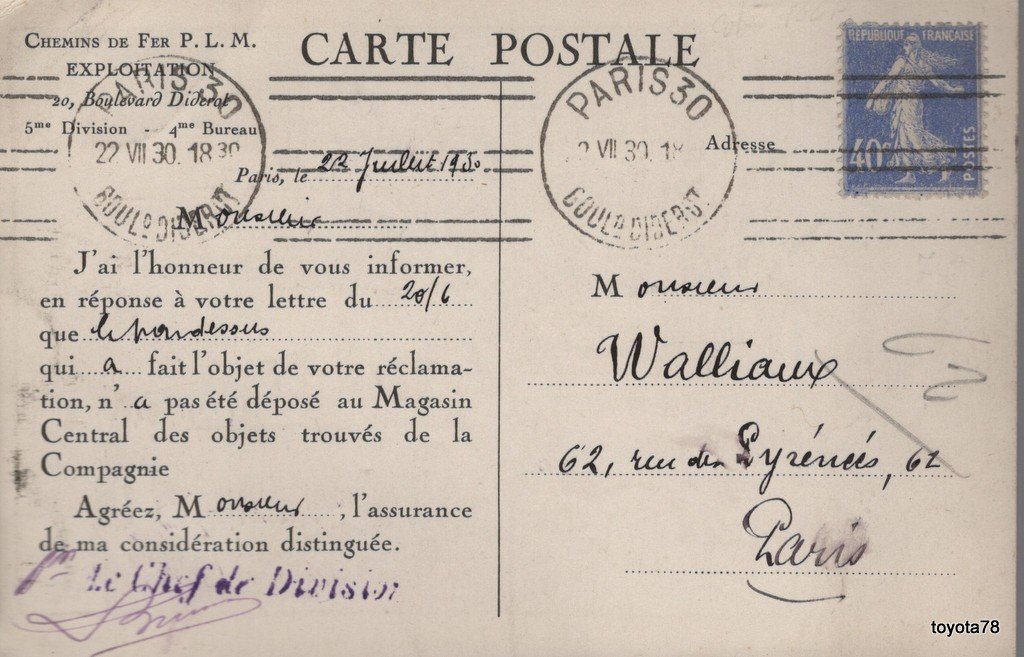 CHEMINS DE FER P. L. M.
EXPLOITATION
20, Boulevard Diderot
5me Division - 4me Bureau
PARIS 30
22 VII 30. 18 30
BOULD DIDEROT
Paris, le 22 Juillet 1930
Monsieur
J'ai l'honneur de vous informer,
en réponse à votre lettre du 20/6
que le pardessus
qui a fait l'objet de votre réclama-
tion, n'a pas été déposé au Magasin
Central des objets trouvés de la
Compagnie
Agréez, Monsieur, l'assurance
de ma considération distinguée.
Pr Le Chef de Division
CARTE POSTALE
PARIS 30
2 VII 30. 18
BOULD DIDEROT
Adresse
RÉPUBLIQUE FRANÇAISE
40c
POSTES
Monsieur
Walliaux
62, rue des Pyrénées, 62
Paris
toyota78